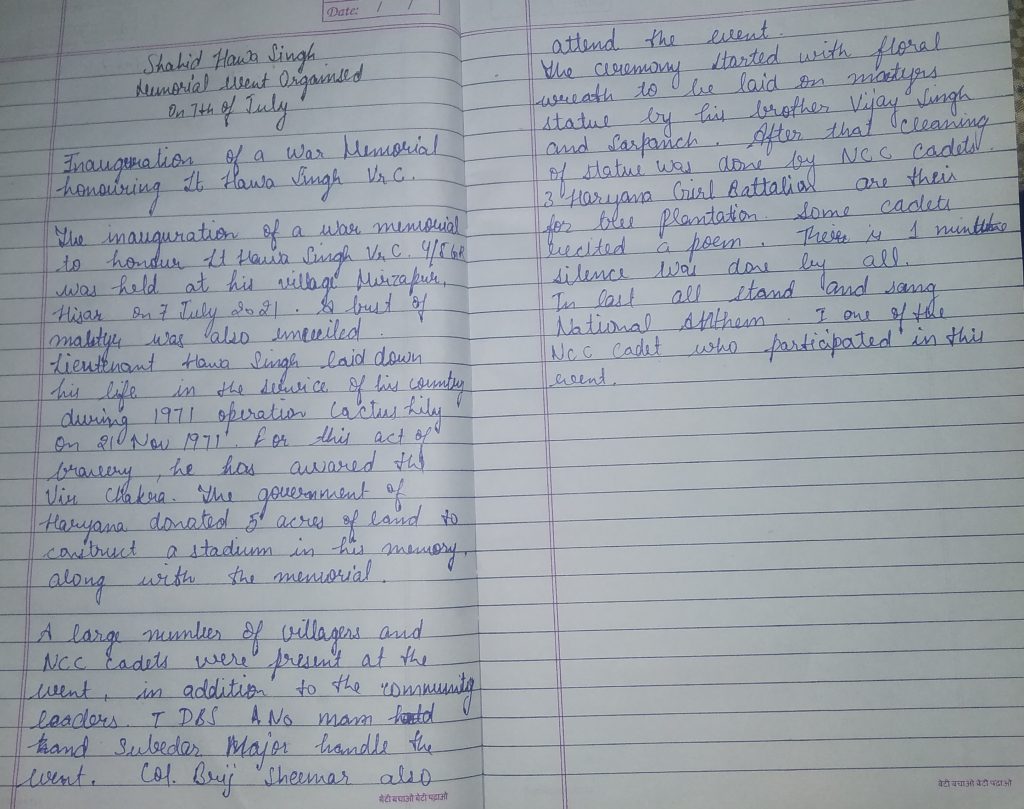 Date: / /
Shahid Hawa Singh
Memorial Event Orgainsed
On 7th of July
Inauguration of a War Memorial
honouring Lt Hawa Singh Vr C.
The inauguration of a war memorial
to honour Lt Hawa Singh Vr C. 4/5 GR
was held at his village Mirzapur,
Hisar on 7 July 2021. A bust of
was also unveiled.
Lieuttenant Hawa Singh laid down
his life in the service of his country
during 1971 operation Cactus Lily
on 21 Nov 1971. For this act of
bravery, he has awared the
Vir Chakra. The government of
Haryana donated 5 acres of land to
construct a stadium in his memory,
along with the memorial.
A large number of villagers and
NCC cadets were present at the
event, in addition to the community
leaders. I DBS ANO mam
and Subedar Major handle the
event. Col. Brij Sheemar also
बेटी बचाओ बेटी पढ़ाओ
attend the event.
The ceremony started with floral
wreath to be laid on martyrs
statue by his brother Vijay Singh
and Sarpanch. After that cleaning
of statue was done by NCC Cadets.
3 Haryana Girl Battalian are their
for tree plantation. Some cadets
recited a poem. There is 1 mintute
silence was done by all.
In last all stand and sang
National Anthem. I one of the
NCC Cadet who participated in this
event.
बेटी बचाओ बेटी पढ़ाओ